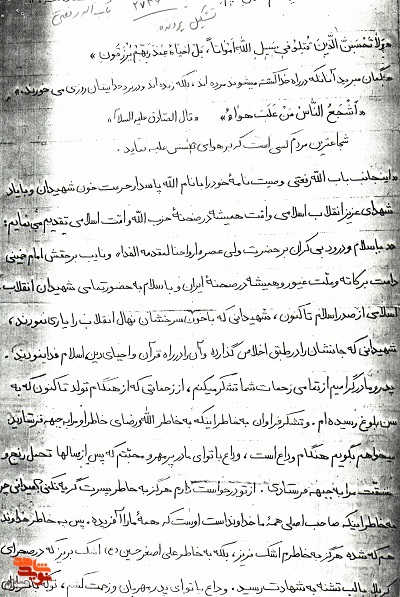 تشکیل پرونده
۲۷۴۶
باب اله رفعتی
«وَلا تَحْسَبَنَّ الَّذینَ قُتِلُو فی سَبیلِ اللّه اَمْواتاً، بَلْ اَحیاءُ عِنْدَ رَبِّهِمْ یُرْزَقُونَ»
«گمان مبرید آنانکه در راه خدا کشته میشوند مرده اند، بلکه زنده اند و در نزد خدایشان روزی می خورند.»
«اَشْجَعُ النّاسِ مَنْ غَلَبَ هَواءُ» «قال الصّادق علیه السلام»
شجاعترین مردم کسی است که بر هوای نفس غلبه نماید.
«اینجانب باب الله رفعتی وصیت نامهٔ خود را با نام الله پاسدار حرمت خون شهیدان و با یاد
شهدای عزیز انقلاب اسلامی و امت همیشه در صحنهٔ حزب الله و امّت اسلامی تقدیم می نمایم:
با سلام و درود بی کران بر حضرت ولی عصر ارواحنا لمقدمه الفداء و نایب بر حقش امام خمینی
دامت برکاته و ملّت غیور و همیشه در صحنهٔ ایران و با سلام به حضور تمامی شهیدان انقلاب
اسلامی از صدر اسلام تاکنون، شهیدانی که با خون سرخشان نهال انقلاب را یاری نمودند،
شهیدانی که جانشان را در طبق اخلاص گذارده و آن را در راه قرآن و احیای دین اسلام فدا نمودند.
پدر و مادر گرامیم از تمامی زحمات شما تشکر میکنم، از زحماتی که از هنگام تولد تاکنون که به
سن بلوغ رسیده ام. و تشکر فراوان به خاطر اینکه به خاطر الله و رضای خاطر او مرا به جبهه فرستادید
میخواهم بگویم هنگام وداع است، وداع با توای مادر پر مهر و محبتم که پس از سالها تحمل رنج و
مشقت مرا به جبهه فرستادی. از تو درخواست دارم هرگز به خاطر پسرت گریه نکنی
به خاطر اینکه صاحب اصلی همهٔ ما خداوند است اوست که همهٔ ما را آفریده. پس به خاطر خداوند
هم که شده هرگز به خاطرم اشک نریز، بلکه به خاطر علی اصغر حسین (ع) اشک بریز که در صحرای
کربلا با لب تشنه به شهادت رسید. وداع با توای پدر مهربان و زحمت کشم،
نوید شاهد